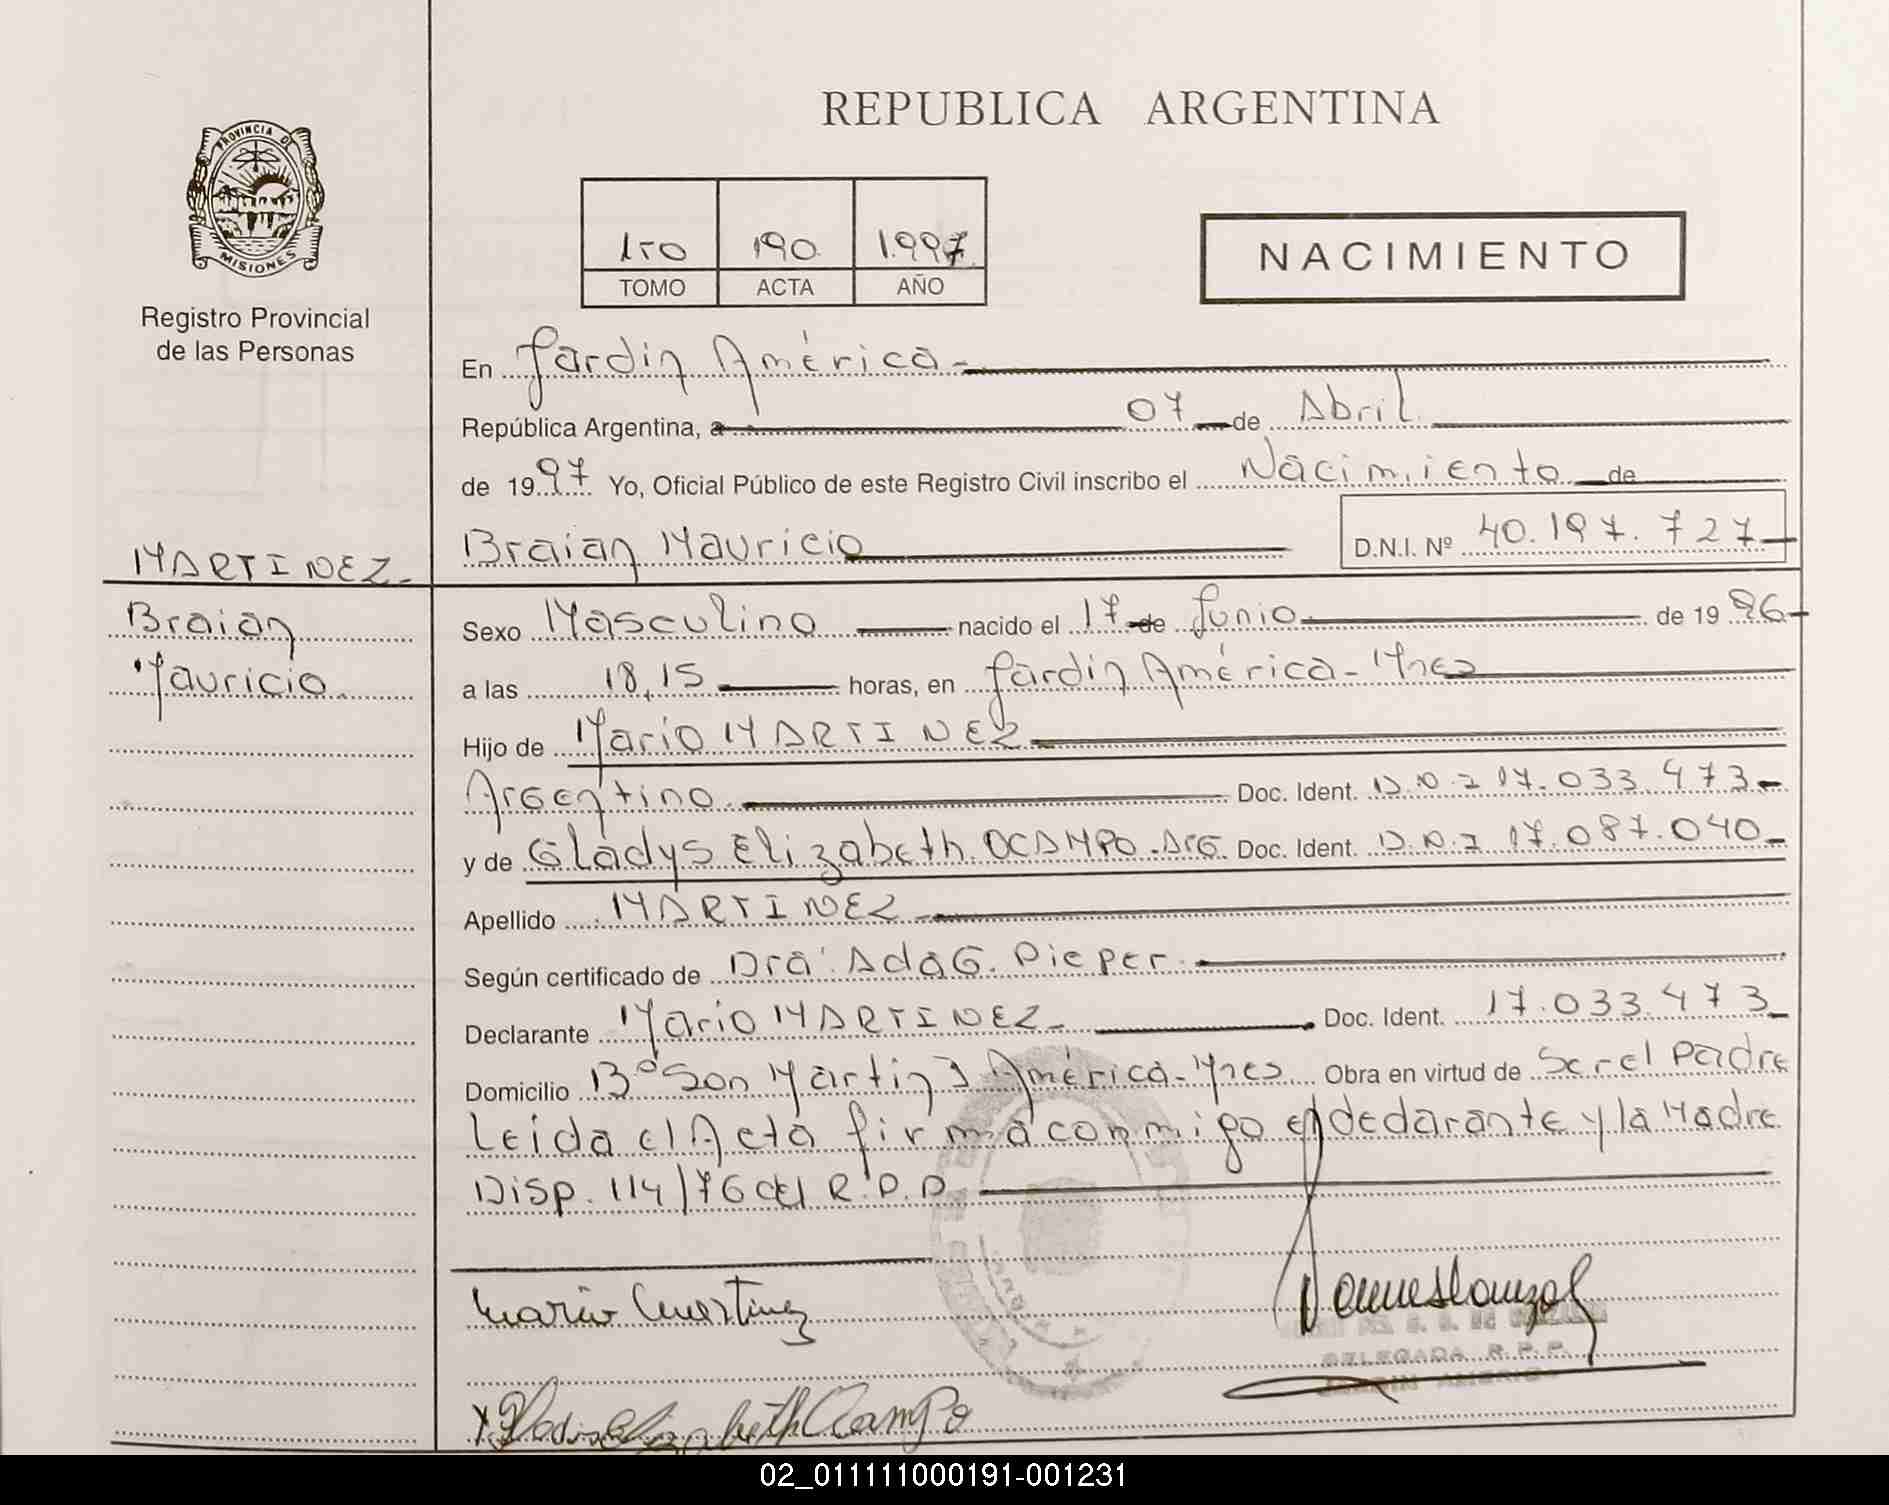 REPUBLICA ARGENTINA
PROVINCIA DE
MISIONES
Registro Provincial
de las Personas
1ro 190 1.997
TOMO ACTA AÑO
NACIMIENTO
En Jardín América-
República Argentina, a 07 de Abril
de 1997 Yo, Oficial Público de este Registro Civil inscribo el Nacimiento de
Braian Mauricio D.N.I. Nº 40.197.727
MARTINEZ-
Braian
Mauricio
Sexo Masculino nacido el 17 de Junio de 1996-
a las 18,15 horas, en Jardín América-Mnes
Hijo de Mario MARTINEZ
Argentino Doc. Ident. D.N.I 17.033.473-
y de Gladys Elizabeth OCAMPO.Arg. Doc. Ident. D.N.I 17.087.040-
Apellido MARTINEZ
Según certificado de Dra. Ada G. Pieper
Declarante Mario MARTINEZ- Doc. Ident. 17.033.473-
Domicilio Bº San Martín J América-Mnes Obra en virtud de Ser el Padre
Leida el Acta firma conmigo el declarante y la Madre
Disp. 114/76 del R.P.P.
Mario Martinez
DELEGADA R.P.P.
JARDIN AMERICA
x Gladis Elizabeth Ocampo
02_011111000191-001231